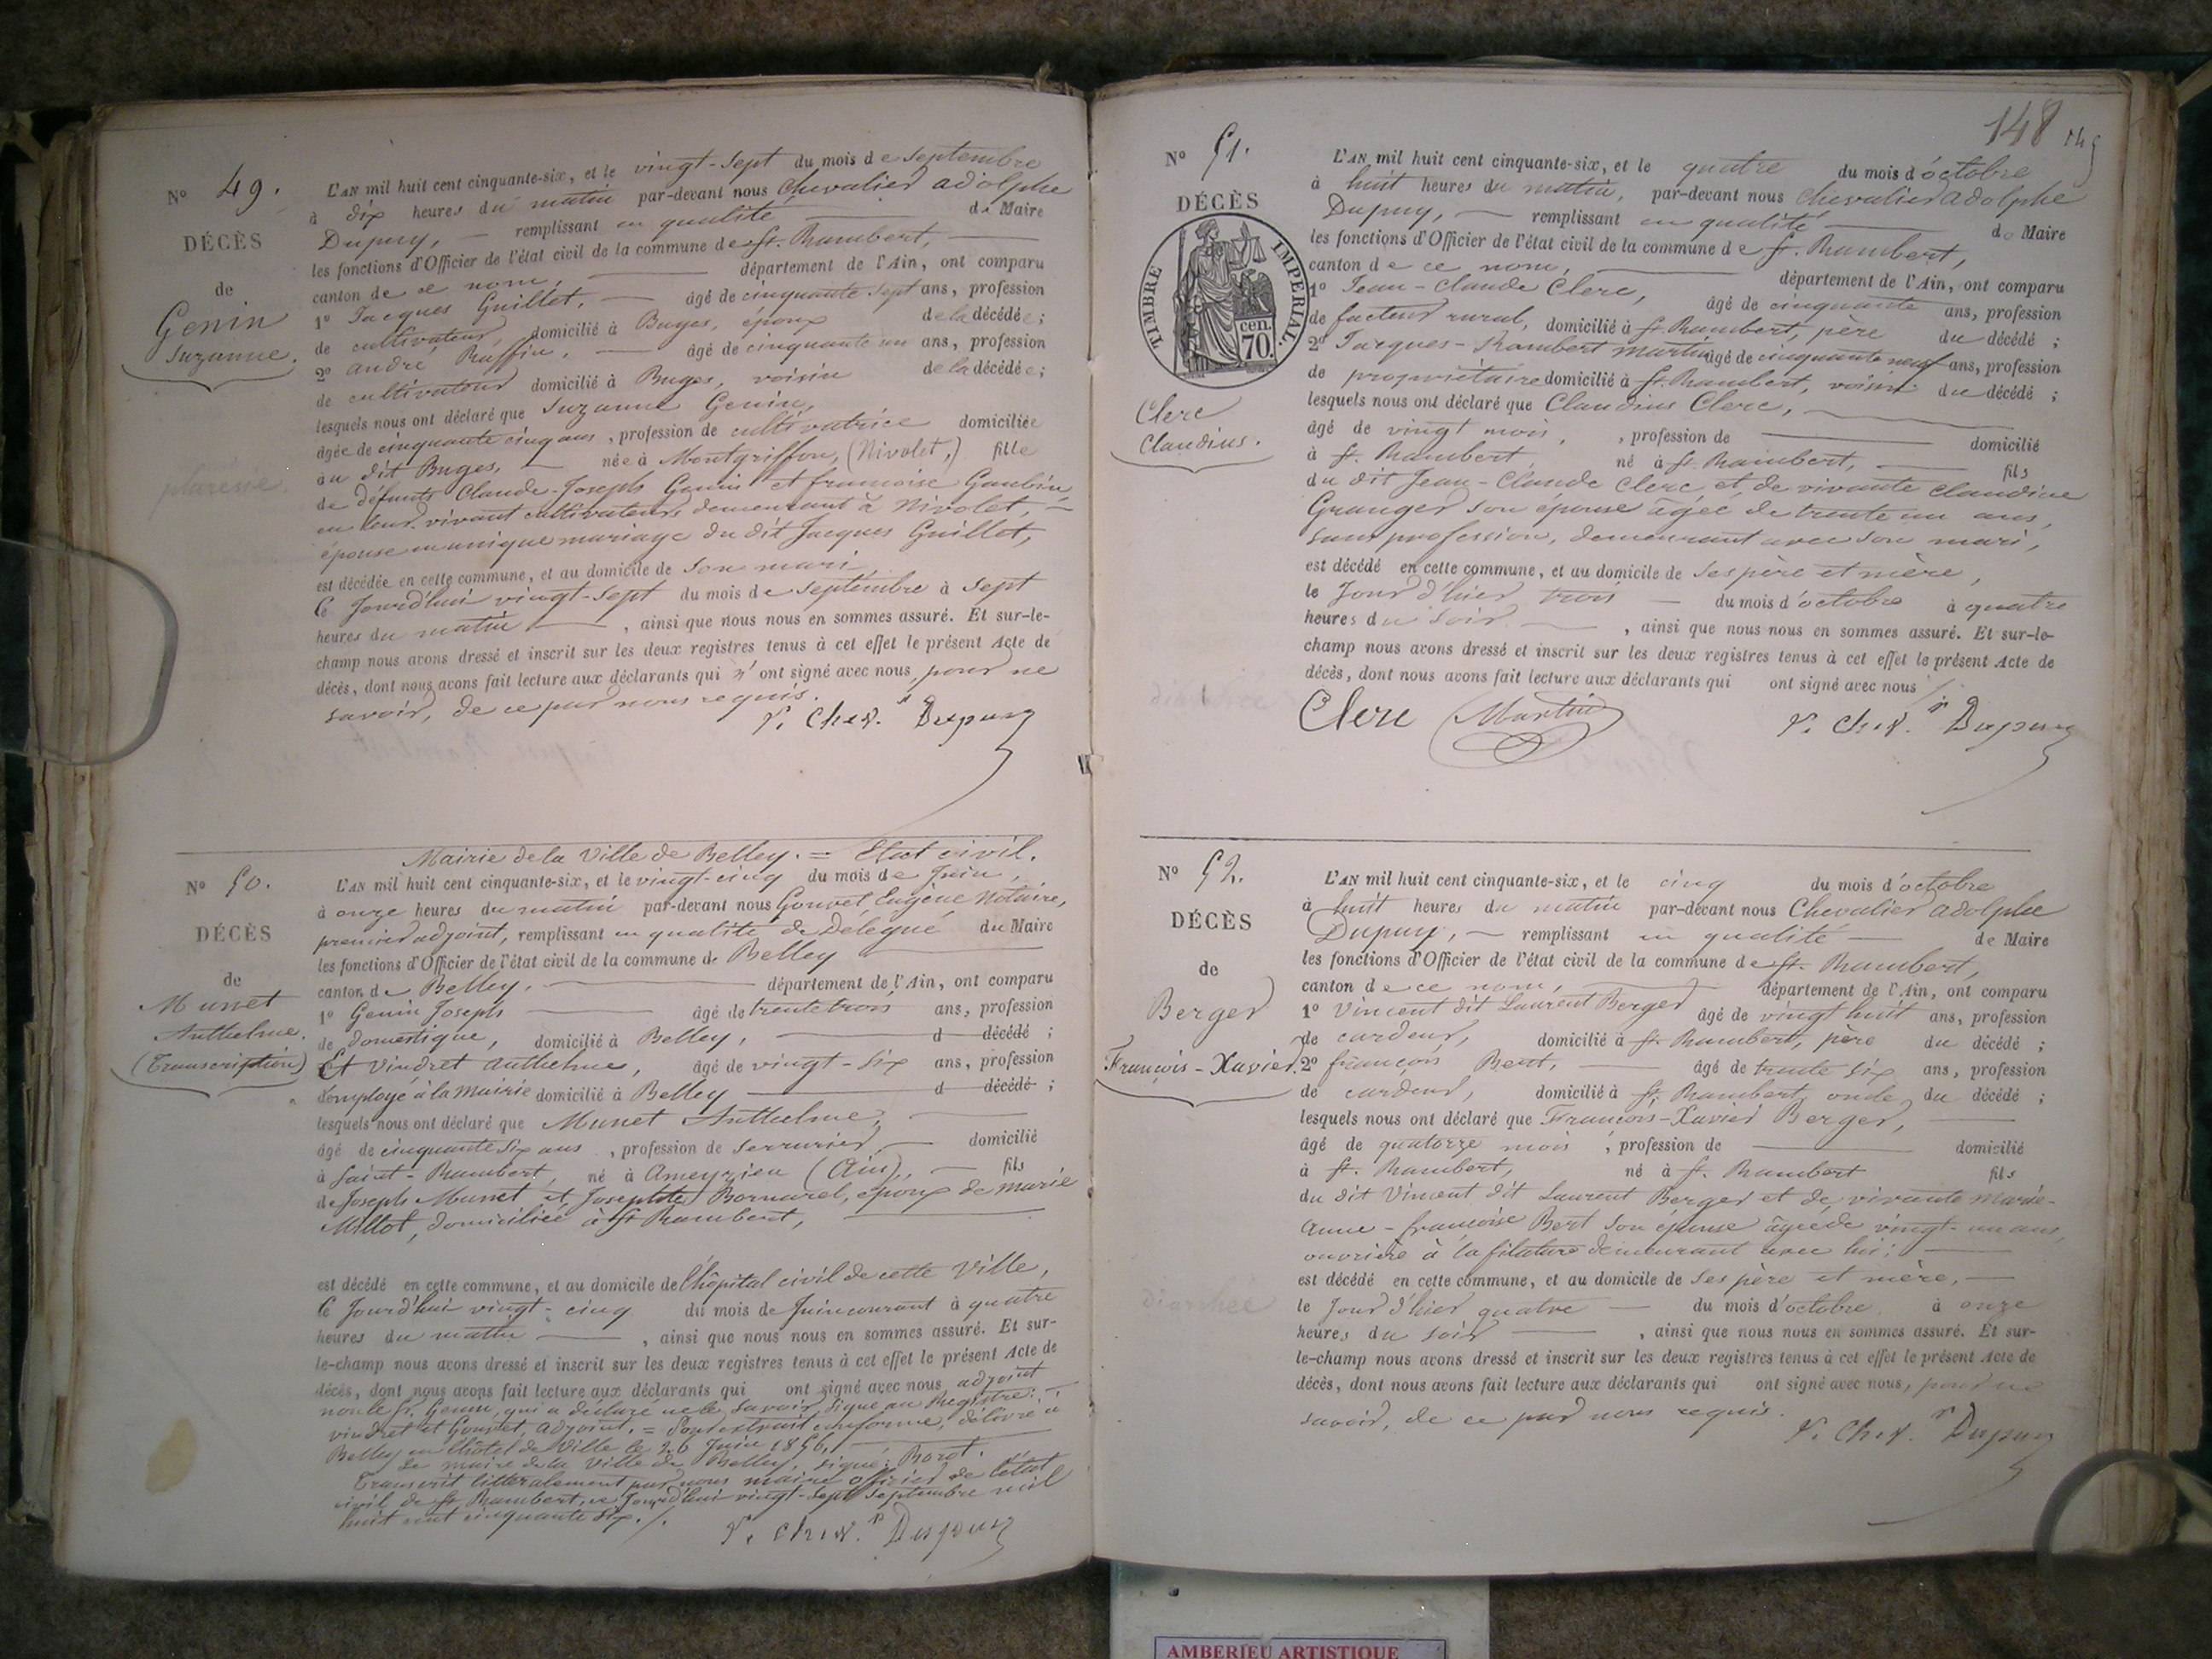 N° 49.
DÉCÈS
de
Genin
Suzanne.
L'AN mil huit cent cinquante-six, et le vingt-sept du mois de septembre
à dix heures du matin par-devant nous Chevalier adolphe
Dupuy, — remplissant en qualité — de Maire
les fonctions d'Officier de l'état civil de la commune de St. Rambert, —
canton de ce nom, — département de l'Ain, ont comparu
1° Jacques Guillot, — âgé de cinquante sept ans, profession
de cultivateur, domicilié à Buges, époux de la décédée;
2° andré Ruffin, — âgé de cinquante un ans, profession
de cultivateur domicilié à Buges, voisin de la décédée;
lesquels nous ont déclaré que Suzanne Genin,
âgée de cinquante cinq ans, profession de cultivatrice domiciliée
au dit Buges, — née à Montgriffon, (Nivolet,) fille
de défunts Claude-Joseph Genin et francoise Gaubin,
en leur vivant cultivateurs demeurant à Nivolet, —
épouse en unique mariage du dit Jacques Guillot,
est décédée en cette commune, et au domicile de son mari,
le Jourd'hui vingt-sept du mois de septembre à sept
heures du matin —, ainsi que nous nous en sommes assuré. Et sur-le-
champ nous avons dressé et inscrit sur les deux registres tenus à cet effet le présent Acte de
décès, dont nous avons fait lecture aux déclarants qui n'ont signé avec nous pour ne
savoir, de ce par nous requis.
Chev.r Dupuy
N° 50.
DÉCÈS
de
Munet
Anthelme.
(Transcription)
Mairie de la Ville de Belley. = Etat civil.
L'AN mil huit cent cinquante-six, et le vingt-cinq du mois de Juin,
à onze heures du matin par-devant nous Gouvet Eugène Notaire,
premier adjoint, remplissant en qualité de Délégué du Maire
les fonctions d'Officier de l'état civil de la commune de Belley
canton de Belley. — département de l'Ain, ont comparu
1° Genin Joseph — âgé de trente trois ans, profession
de domestique, domicilié à Belley, — d décédé ;
Et Vindret Anthelme, âgé de vingt-six ans, profession
d'employé à la Mairie domicilié à Belley — d décédé ;
lesquels nous ont déclaré que Munet Anthelme, —
âgé de cinquante six ans, profession de Serrurier, — domicilié
à Saint-Rambert, né à Ameyzieu (Ain), — fils
de Joseph Munet et Josephte Bornarel, époux de Marie
Millot, domiciliée à St Rambert, —
est décédé en cette commune, et au domicile de l'hôpital civil de cette Ville,
le Jourd'hui vingt-cinq du mois de Juin courant à quatre
heures du matin —, ainsi que nous nous en sommes assuré. Et sur-
le-champ nous avons dressé et inscrit sur les deux registres tenus à cet effet le présent Acte de
décès, dont nous avons fait lecture aux déclarants qui ont signé avec nous adjoint
non le Sr. Genin, qui a déclaré ne le savoir. Signé au Registre:
vindret et Gouvet, adjoint. = Pour extrait conforme, délivré à
Belley en l'hôtel de Ville le 26 Juin 1856, —
Le maire de la ville de Belley, signé: Borot.
Transcrit littéralement par nous maire officier de l'état
civil de St Rambert, ce Jourd'hui vingt-sept septembre mil
huit cent cinquante six./.
Chev.r Dupuy
148
N° 51.
DÉCÈS
TIMBRE IMPERIAL.
cen.
70.
Clerc
Claudius.
L'AN mil huit cent cinquante-six, et le quatre du mois d'octobre
à huit heures du matin, par-devant nous Chevalier adolphe
Dupuy, — remplissant en qualité — de Maire
les fonctions d'Officier de l'état civil de la commune de St. Rambert,
canton de ce nom, — département de l'Ain, ont comparu
1° Jean-Claude Clerc, âgé de cinquante ans, profession
de facteur rural, domicilié à St. Rambert, père du décédé ;
2° Jacques-Rambert martin âgé de cinquante neuf ans, profession
de propriétaire domicilié à St. Rambert, voisin du décédé ;
lesquels nous ont déclaré que Claudius Clerc, —
âgé de vingt mois, , profession de — domicilié
à St. Rambert, né à St. Rambert, — fils
du dit Jean-Claude Clerc et de vivante Claudine
Granger son épouse âgée de trente un ans,
sans profession, demeurant avec son mari,
est décédé en cette commune, et au domicile de ses père et mère,
le Jour d'hier trois — du mois d'octobre à quatre
heures du soir —, ainsi que nous nous en sommes assuré. Et sur-le-
champ nous avons dressé et inscrit sur les deux registres tenus à cet effet le présent Acte de
décès, dont nous avons fait lecture aux déclarants qui ont signé avec nous
Clerc Martin Chev.r Dupuy
N° 52.
DÉCÈS
de
Berger
François-Xavier.
diarrhée
L'AN mil huit cent cinquante-six, et le cinq du mois d'octobre
à huit heures du matin par-devant nous Chevalier adolphe
Dupuy, — remplissant en qualité — de Maire
les fonctions d'Officier de l'état civil de la commune de St. Rambert,
canton de ce nom, — département de l'Ain, ont comparu
1° Vincent dit Laurent Berger âgé de vingt huit ans, profession
de cardeur, domicilié à St Rambert, père du décédé ;
2° françois Bert, — âgé de trente six ans, profession
de cardeur, domicilié à St. Rambert, oncle du décédé ;
lesquels nous ont déclaré que François-Xavier Berger, —
âgé de quatorze mois , profession de — domicilié
à St. Rambert, né à St. Rambert fils
du dit Vincent dit Laurent Berger et de vivante Marie-
Anne-françoise Bert son épouse âgée de vingt-un ans,
ouvrière à la filature demeurant avec lui; —
est décédé en cette commune, et au domicile de ses père et mère, —
le Jour d'hier quatre — du mois d'octobre à onze
heures du soir —, ainsi que nous nous en sommes assuré. Et sur-
le-champ nous avons dressé et inscrit sur les deux registres tenus à cet effet le présent Acte de
décès, dont nous avons fait lecture aux déclarants qui ont signé avec nous, pour ne
savoir, de ce par nous requis.
Chev.r Dupuy
AMBERIEU ARTISTIQUE